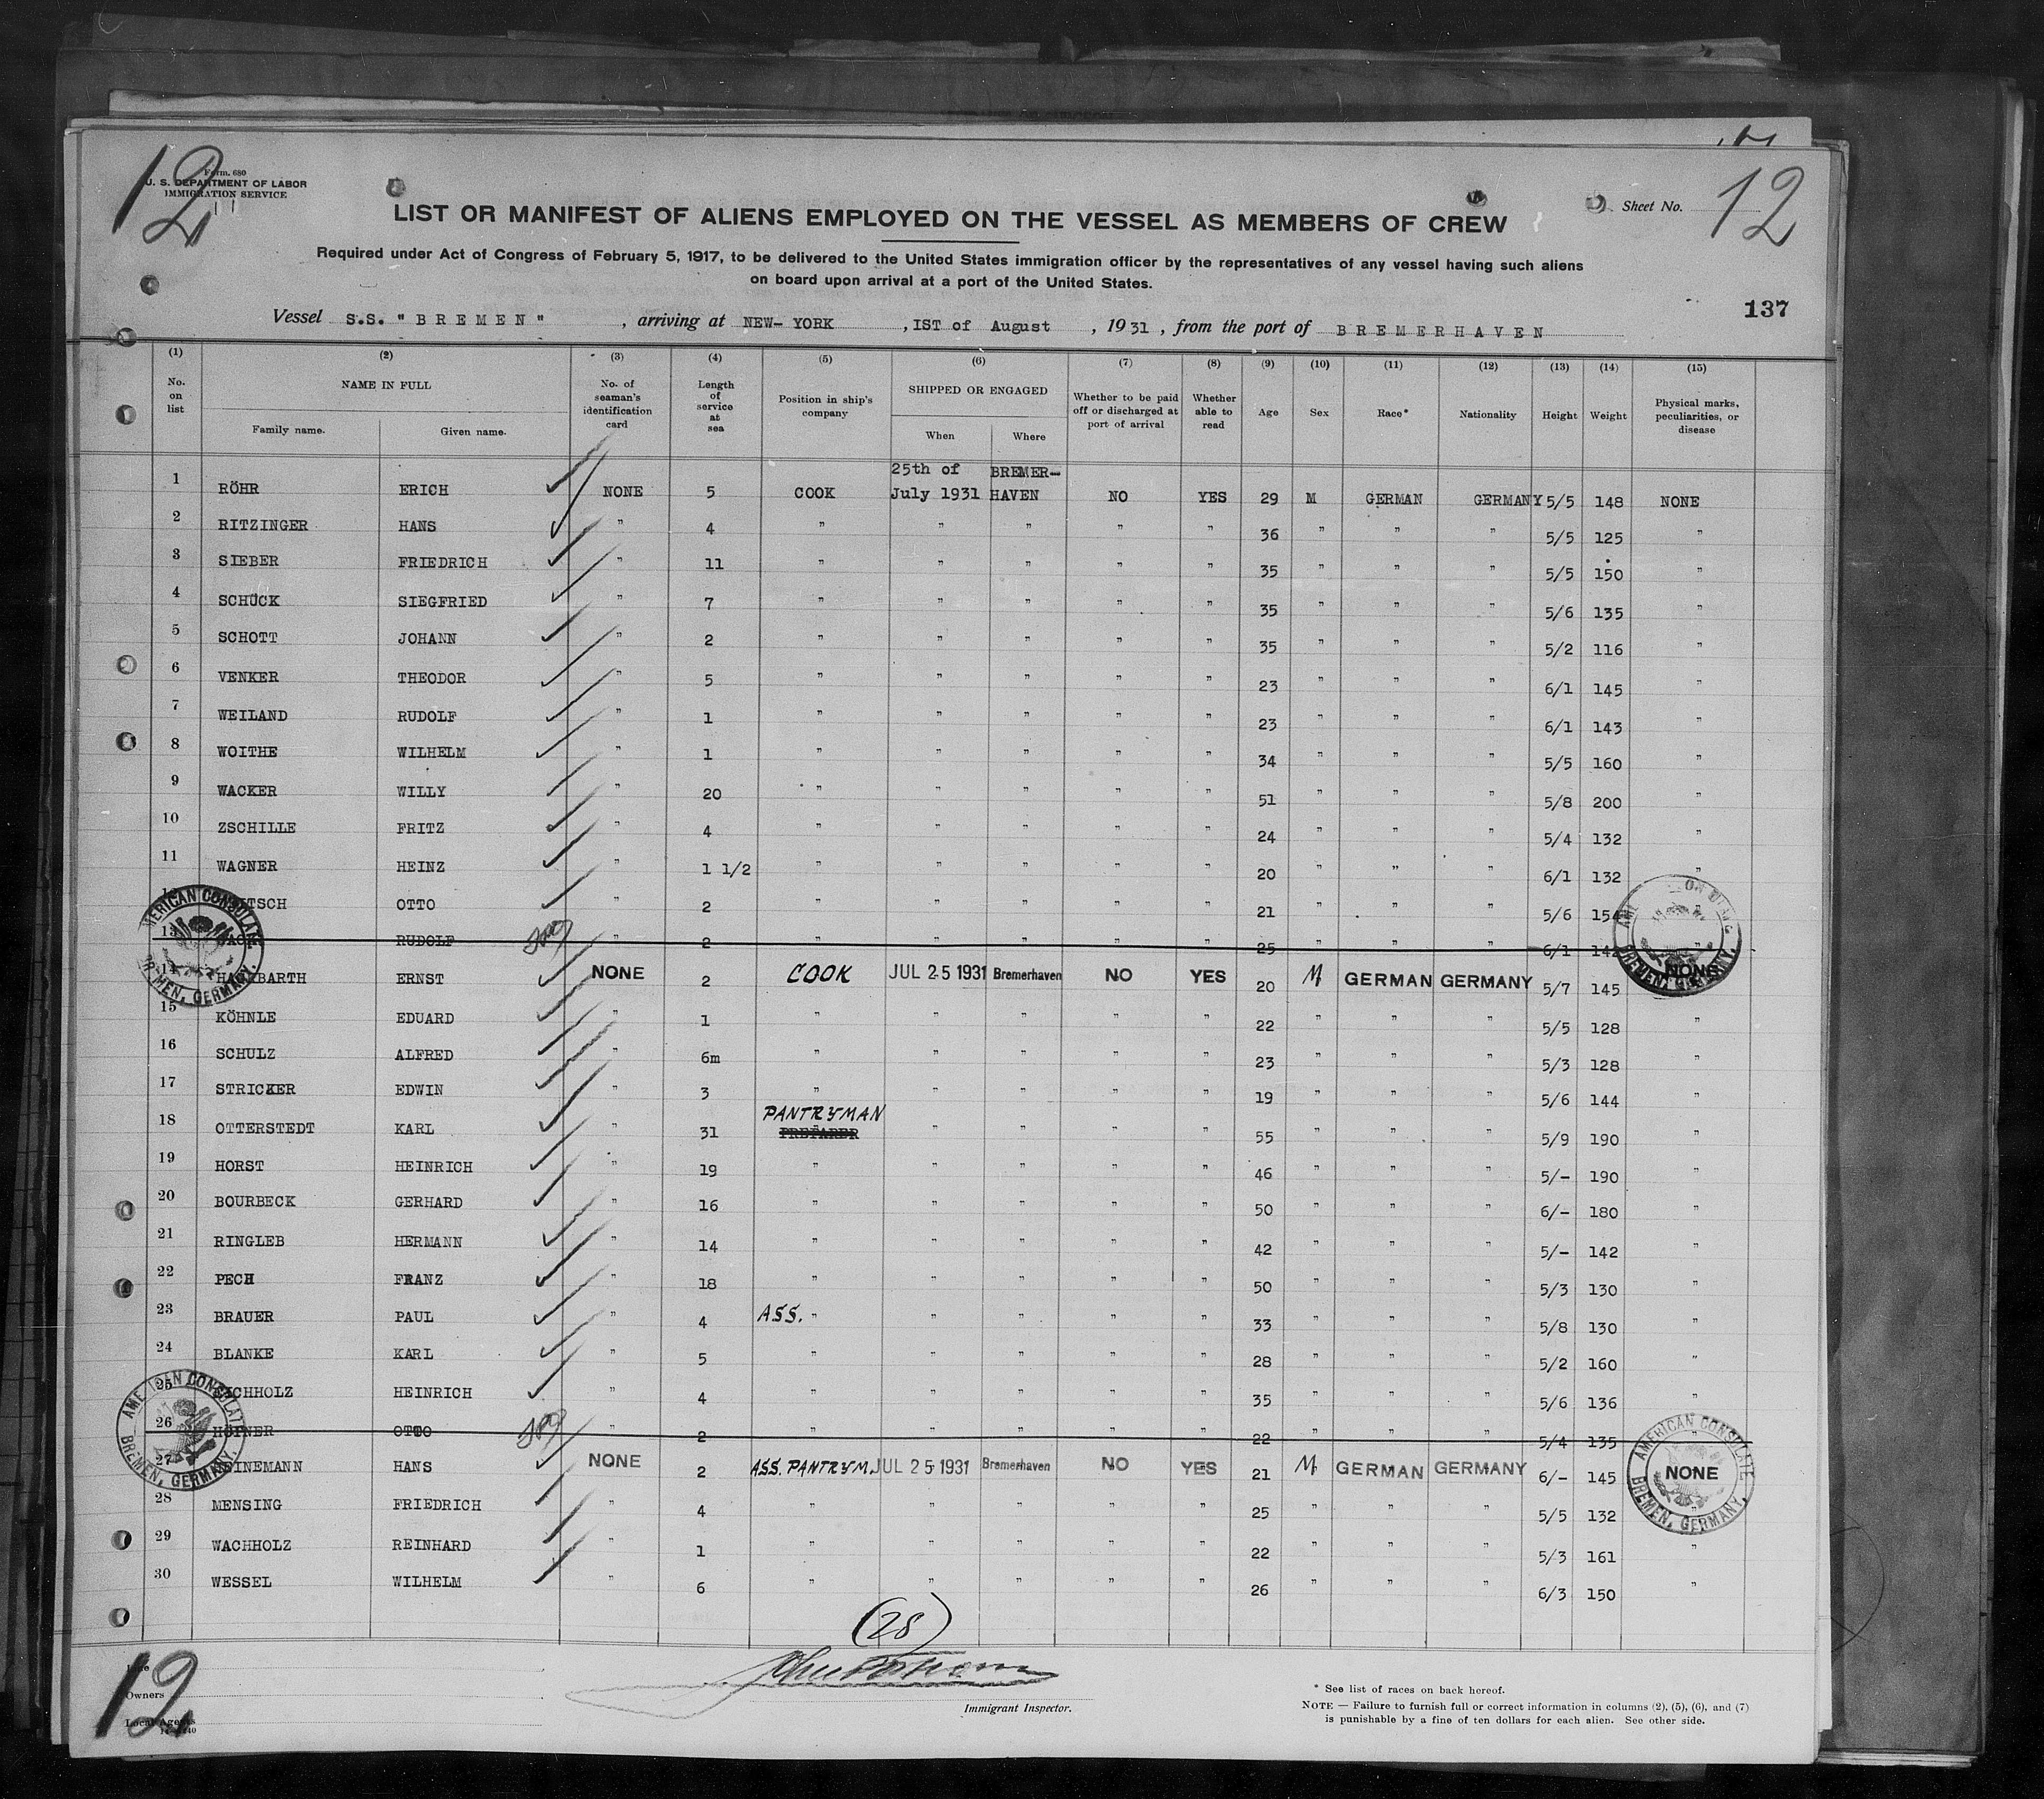 12
Form. 680
U. S. DEPARTMENT OF LABOR
IMMIGRATION SERVICE
LIST OR MANIFEST OF ALIENS EMPLOYED ON THE VESSEL AS MEMBERS OF CREW
Sheet No. 12
Required under Act of Congress of February 5, 1917, to be delivered to the United States immigration officer by the representatives of any vessel having such aliens
on board upon arrival at a port of the United States.
137
Vessel S.S. "BREMEN", arriving at NEW-YORK, IST of August, 1931, from the port of BREMERHAVEN
(1) (2) (3) (4) (5) (6) (7) (8) (9) (10) (11) (12) (13) (14) (15)
No. on list NAME IN FULL Family name. Given name. No. of seaman's identification card Length of service at sea Position in ship's company SHIPPED OR ENGAGED When Where Whether to be paid off or discharged at port of arrival Whether able to read Age Sex Race* Nationality Height Weight Physical marks, peculiarities, or disease
1 RÖHR ERICH NONE 5 COOK 25th of July 1931 BREMER-HAVEN NO YES 29 M GERMAN GERMANY 5/5 148 NONE
2 RITZINGER HANS " 4 " " " " " 36 " " " 5/5 125 "
3 SIEBER FRIEDRICH " 11 " " " " " 35 " " " 5/5 150 "
4 SCHÜCK SIEGFRIED " 7 " " " " " 35 " " " 5/6 135 "
5 SCHOTT JOHANN " 2 " " " " " 35 " " " 5/2 116 "
6 VENKER THEODOR " 5 " " " " " 23 " " " 6/1 145 "
7 WEILAND RUDOLF " 1 " " " " " 23 " " " 6/1 143 "
8 WOITHE WILHELM " 1 " " " " " 34 " " " 5/5 160 "
9 WACKER WILLY " 20 " " " " " 51 " " " 5/8 200 "
10 ZSCHILLE FRITZ " 4 " " " " " 24 " " " 5/4 132 "
11 WAGNER HEINZ " 1 1/2 " " " " " 20 " " " 6/1 132 "
12 OTTO " 2 " " " " " 21 " " " 5/6 154 "
13 RUDOLF " 2 " " " " " 25 " " " 6/1 142 "
14 ERNST NONE 2 COOK JUL 25 1931 Bremerhaven NO YES 20 M GERMAN GERMANY 5/7 145 NONE
15 KÖHNLE EDUARD " 1 " " " " " 22 " " " 5/5 128 "
16 SCHULZ ALFRED " 6m " " " " " 23 " " " 5/3 128 "
17 STRICKER EDWIN " 3 " " " " " 19 " " " 5/6 144 "
18 OTTERSTEDT KARL " 31 PANTRYMAN " " " " 55 " " " 5/9 190 "
19 HORST HEINRICH " 19 " " " " " 46 " " " 5/- 190 "
20 BOURBECK GERHARD " 16 " " " " " 50 " " " 6/- 180 "
21 RINGLEB HERMANN " 14 " " " " " 42 " " " 5/- 142 "
22 PECH FRANZ " 18 " " " " " 50 " " " 5/3 130 "
23 BRAUER PAUL " 4 ASS. " " " " " 33 " " " 5/8 130 "
24 BLANKE KARL " 5 " " " " " 28 " " " 5/2 160 "
25 HEINRICH " 4 " " " " " 35 " " " 5/6 136 "
26 HÖPNER OTTO " 2 " " " " " 22 " " " 5/4 135 "
27 HEINEMANN HANS NONE 2 ASS. PANTRYM. JUL 25 1931 Bremerhaven NO YES 21 M GERMAN GERMANY 6/- 145 NONE
28 MENSING FRIEDRICH " 4 " " " " " 25 " " " 5/5 132 "
29 WACHHOLZ REINHARD " 1 " " " " " 22 " " " 5/3 161 "
30 WESSEL WILHELM " 6 " " " " " 26 " " " 6/3 150 "
AMERICAN CONSULATE
BREMEN, GERMANY.
AMERICAN CONSULATE
BREMEN, GERMANY.
AMERICAN CONSULATE
BREMEN, GERMANY.
(28)
12
Owners
Local Agents
Immigrant Inspector.
* See list of races on back hereof.
NOTE — Failure to furnish full or correct information in columns (2), (5), (6), and (7)
is punishable by a fine of ten dollars for each alien. See other side.